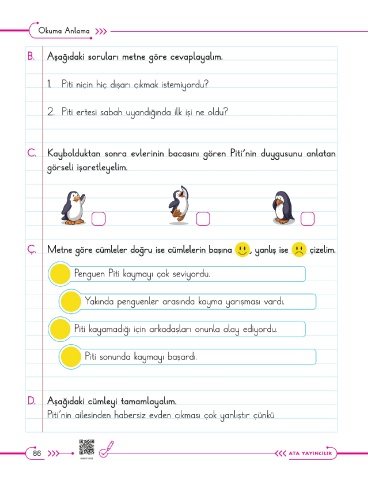 Okuma Anlama
B. Aşağıdaki soruları metne göre cevaplayalım.
1. Piti niçin hiç dışarı çıkmak istemiyordu?
2. Piti ertesi sabah uyandığında ilk işi ne oldu?
C. Kaybolduktan sonra evlerinin bacasını gören Piti'nin duygusunu anlatan
görseli işaretleyelim.
Ç. Metne göre cümleler doğru ise cümlelerin başına , yanlış ise çizelim.
Penguen Piti kaymayı çok seviyordu.
Yakında penguenler arasında kayma yarışması vardı.
Piti kayamadığı için arkadaşları onunla alay ediyordu.
Piti sonunda kaymayı başardı.
D. Aşağıdaki cümleyi tamamlayalım.
Piti'nin ailesinden habersiz evden çıkması çok yanlıştır çünkü
86
ATA YAYINCILIK